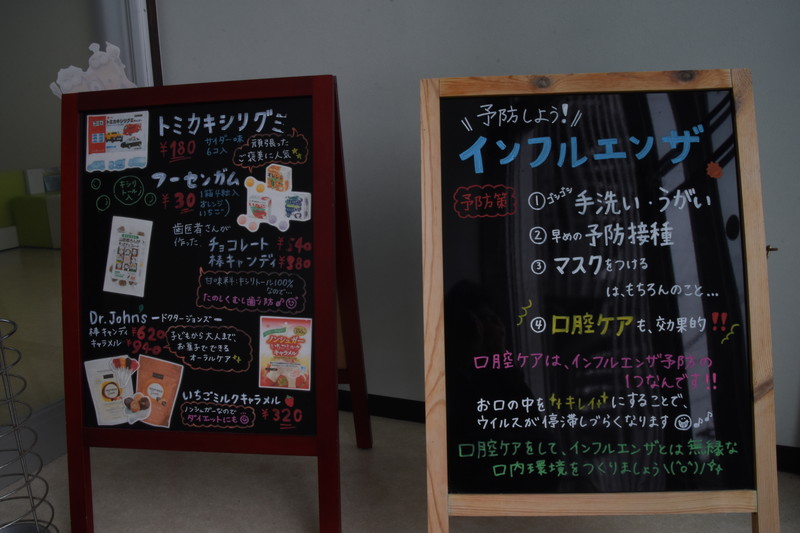 トミカキシリグミ
¥180
サイダー味
6コ入
頑張った
ご褒美に人気
キシリ
トール
入
フーセンガム
¥30
オレンジ
いちご
歯医者さんが
作った
チョコレート
棒キャンディ
¥540
甘味料:キシリトール100%
なので…
たのしくむし歯予防♪
Dr.John's ードクタージョンズー
棒キャンディ ¥620
キャラメル ¥940
子どもから大人まで、
お菓子でできる
オーラルケア
いちごミルクキャラメル
ノンシュガーなので
ダイエットにも
¥320
予防しよう!
インフルエンザ
予防策
① ゴシゴシ 手洗い・うがい
② 早めの予防接種
③ マスクをつける
は、もちろんのこと…
④ 口腔ケアも、効果的!!
口腔ケアは、インフルエンザ予防の
1つなんです!!
お口の中をキレイにすることで、
ウイルスが停滞しづらくなります♪♪
口腔ケアをして、インフルエンザとは無縁な
口内環境をつくりましょう\(^o^)/